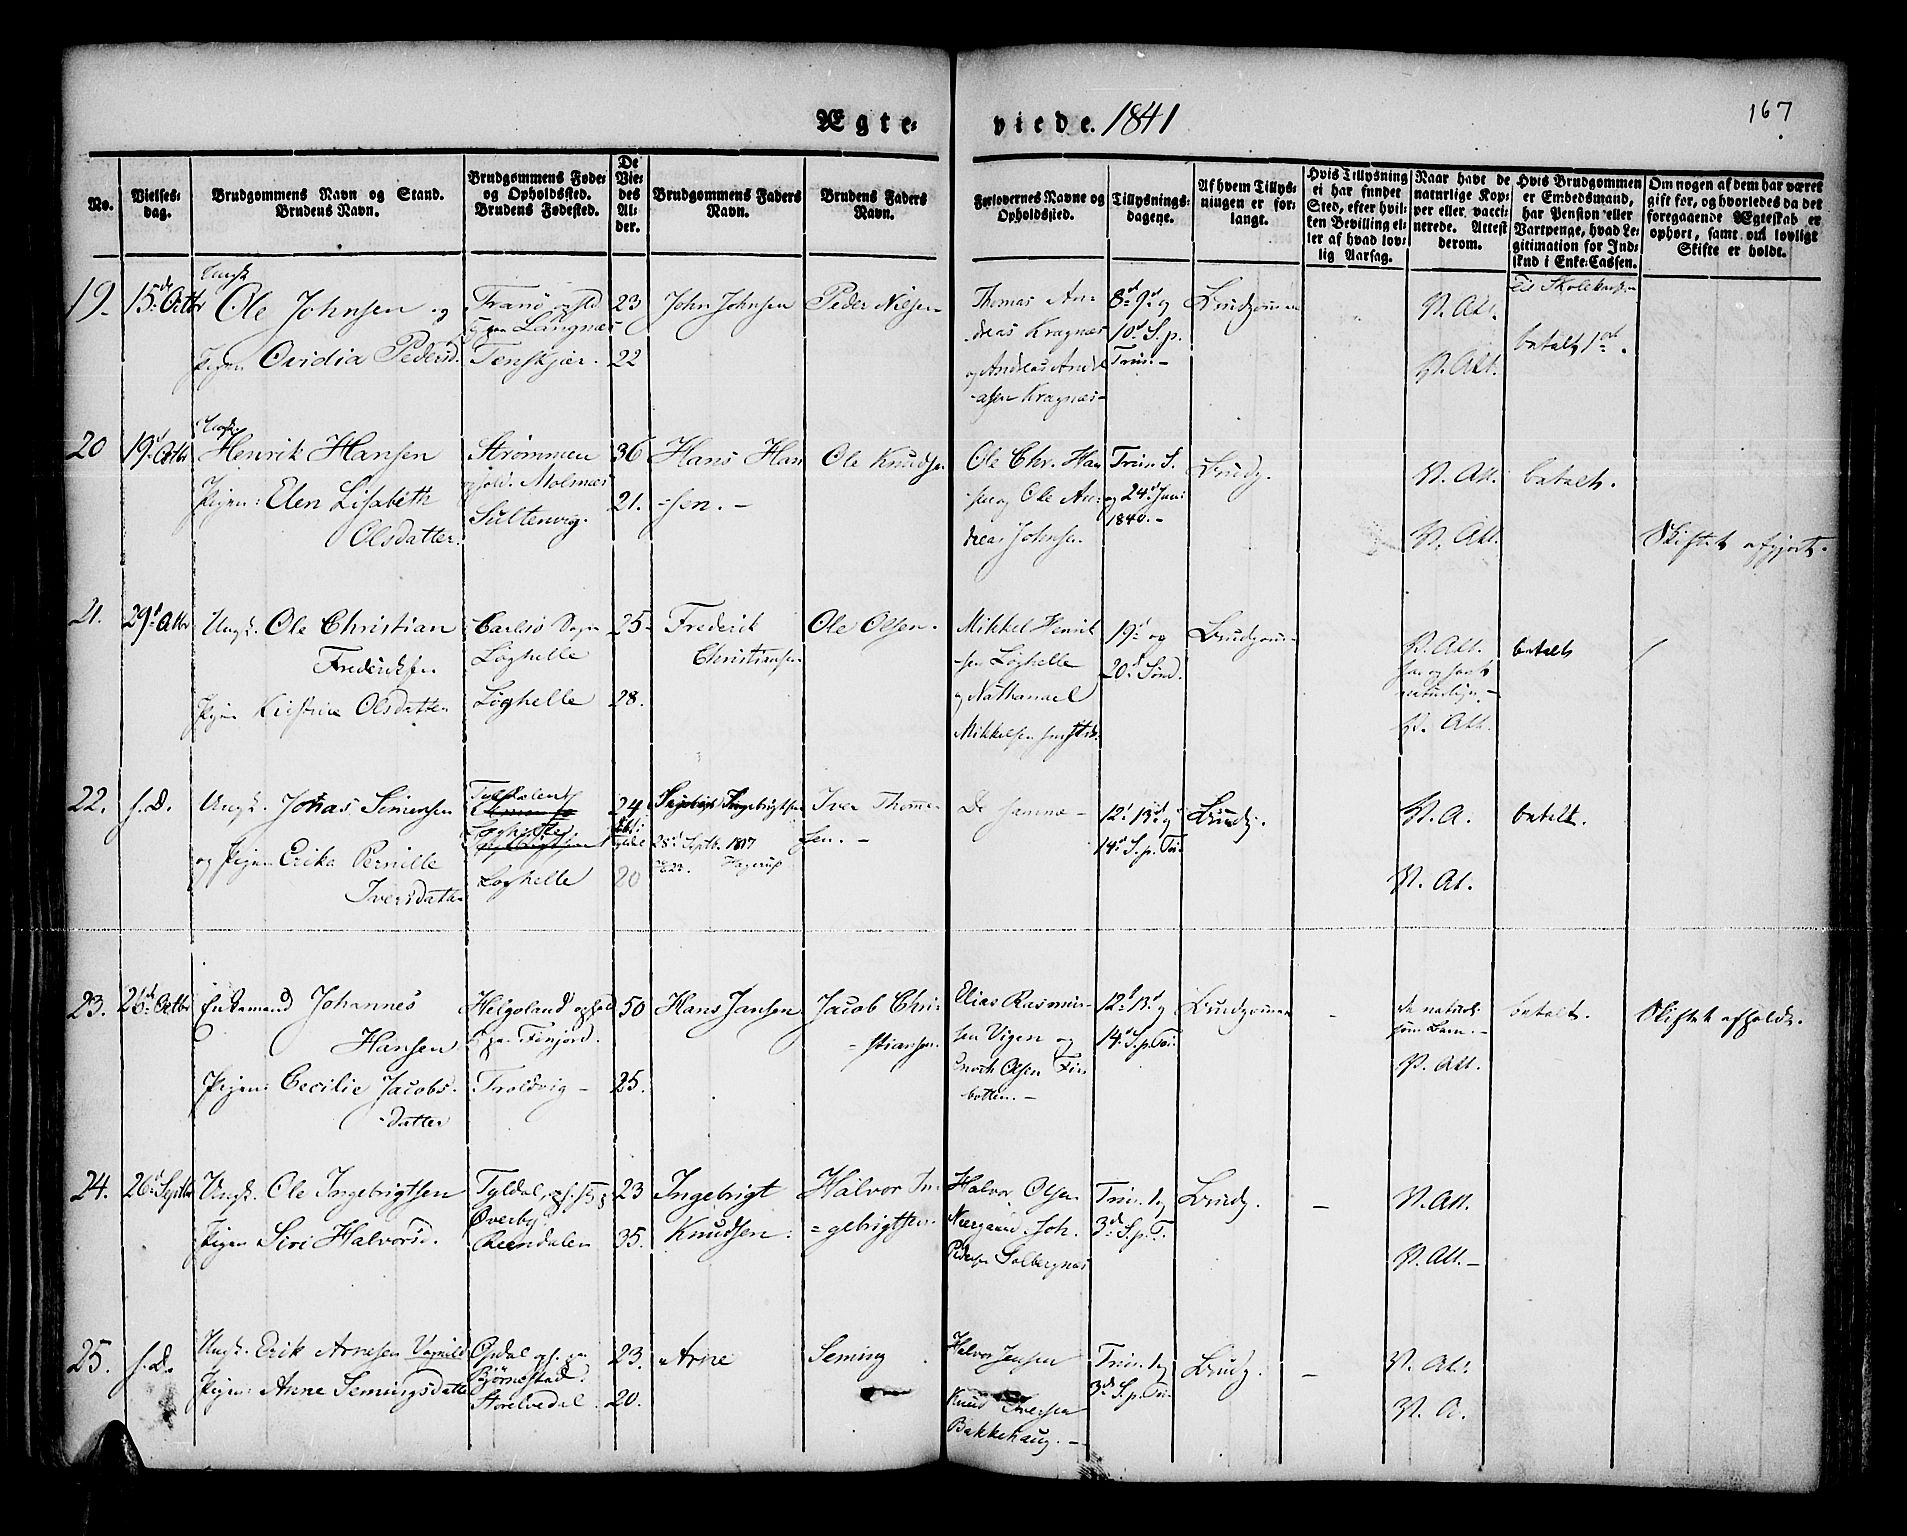 Ægte-
viede. 1841
167
No.
Vielses-
dag.
Brudgommens Navn og Stand.
Brudens Navn.
Brudgommens Føde-
og Opholdssted.
Brudens Fødested.
De
Vie-
des
Al-
der.
Brudgommens Faders
Navn.
Brudens Faders
Navn.
Forlovernes Navne og
Opholdssted.
Tillysnings-
dagene.
Af hvem Tillys-
ningen er for-
langt.
Hvis Tillysning
ei har fundet
Sted, efter hvil-
ken Bevilling el-
ler af hvad lov-
lig Aarsag.
Naar havt de
naturlige Kop-
per eller vacci-
nerede. Attest
derom.
Hvis Brudgommen
er Embedsmand,
har Pension eller
Vartpenge, hvad Le-
gitimation for Ind-
skud i Enke-Cassen.
Om nogen af dem har været
gift før, og hvorledes da det
foregaaende Ægteskab er
ophørt, samt om lovligt
Skifte er holdt.
19. 15de Octbr
Ungk
Ole Johnsen og
Pigen Ovidia Pedersd.
Tranø
Langnæs
Tenskjær.
23
22
John Johnsen
Peder Nilsen
Thomas An-
dreas Kragnæs
og Andreas Andre
asen Kragnæs
8d 9d og
10d S. p.
Trin.
Brudgommen
V. Att.
V. Att.
betalt
20 19d Octbr
Henrik Hansen
Pigen: Elen Lisabeth
Olsdatter.
Strømmen
Molnæs
Sultenvig.
36
21.
Hans Han
=sen.
Ole Knudsen
Ole Chr. Han
sen og Ole An-
dreas Johnsen
Trin. S.
og 24d Jan:
1840.
Brudg.
V. Att.
V. Att.
betalt.
Skiftet afgjort.
21. 29d Octbr
Ungk. Ole Christian
Frederiksen
Pigen Kirstine Olsdatter
Carlsø
Løghelle
Løghelle
25
28.
Frederik
Christiansen
Ole Olsen.
Mikkel Henrik
sen Løghelle
og Nathanael
Mikkelsen
19d og
20d Sønd.
Brudgom
V. Att.
V. Att.
betalt
22. s. D.
Ungk. Jonas Simensen
og Pigen Erika Pernille
Iversdatter
Tyldalen
Løghelle
24
20
Ingebrigtsen
28d Septbr. 1817
Hagerup
Iver Thomes
sen.
De samme
12d 13d og
14d S. p. Tri
Brudg.
V. A.
V. At.
betalt.
23. 26d Octbr
Enkemand Johannes
Hansen
Pigen: Cecilie Jacobs-
datter
Helgoland
Finjord.
Troldvig
50
25.
Hans Jansen
Jacob Chri-
=stiansen.
Elias Rasmus-
sen Vigen og
Enoch Olsen Fin
botten.
12d 13d og
14d S. p. Tri.
Brudgommen
de naturl.
som Barn.
V. Att.
betalt.
Skiftet afholdt.
24. 26d Septbr
Ungk. Ole Ingebrigtsen
Pigen Siri Halvorsd.
Tyldal,
Øverby.
Reendalen
23
35.
Ingebrigt
Knudsen
Halvor In-
=gebrigtsen.
Halvor Olsen
Nergaard Joh.
Peders. Solbergnæs
Trin. og
3d S. p. T.
Brudg.
V. Att.
V. Att.
25. s. D.
Ungk. Erik Arnesen Vognild
Pigen: Anne Semingsdatter
Opdal
Bjørnestad.
Storelvedal.
23.
20.
Arne
Seming
Halvor Jensen
Knud Iversen
Bakkehaug.
Trin. og
3d S. p. Tri
Brudg.
V. At.
V. A.